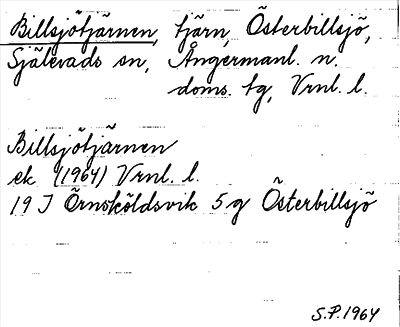 Billsjötjärnen, tjärn, Österbillsjö,
Själevads sn, Ångermanl. n.
doms. tg, Vrnl. l.
Billsjötjärnen
ek (1964) Vrnl. l.
19 J Örnsköldsvik 5 g Österbillsjö
S.P. 1964